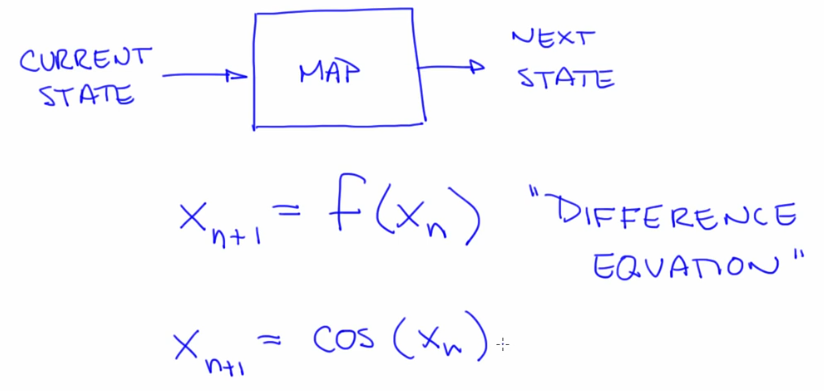 CURRENT STATE
MAP
NEXT STATE
x_{n+1} = f(x_n) "DIFFERENCE
EQUATION"
x_{n+1} = cos(x_n)